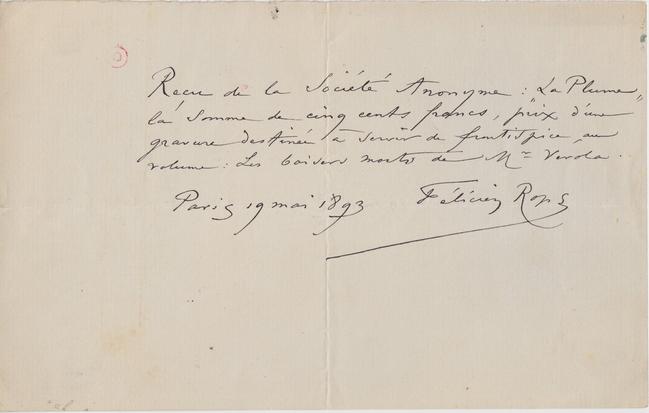 Recu de la Société Anonyme : "La Plume"
la somme de cinq cents francs, prix d'une
gravure destinée à servir de frontispice au
volume : Les baisers morts de Mr Vérola.
Paris 19 mai 1893 Félicien Rops